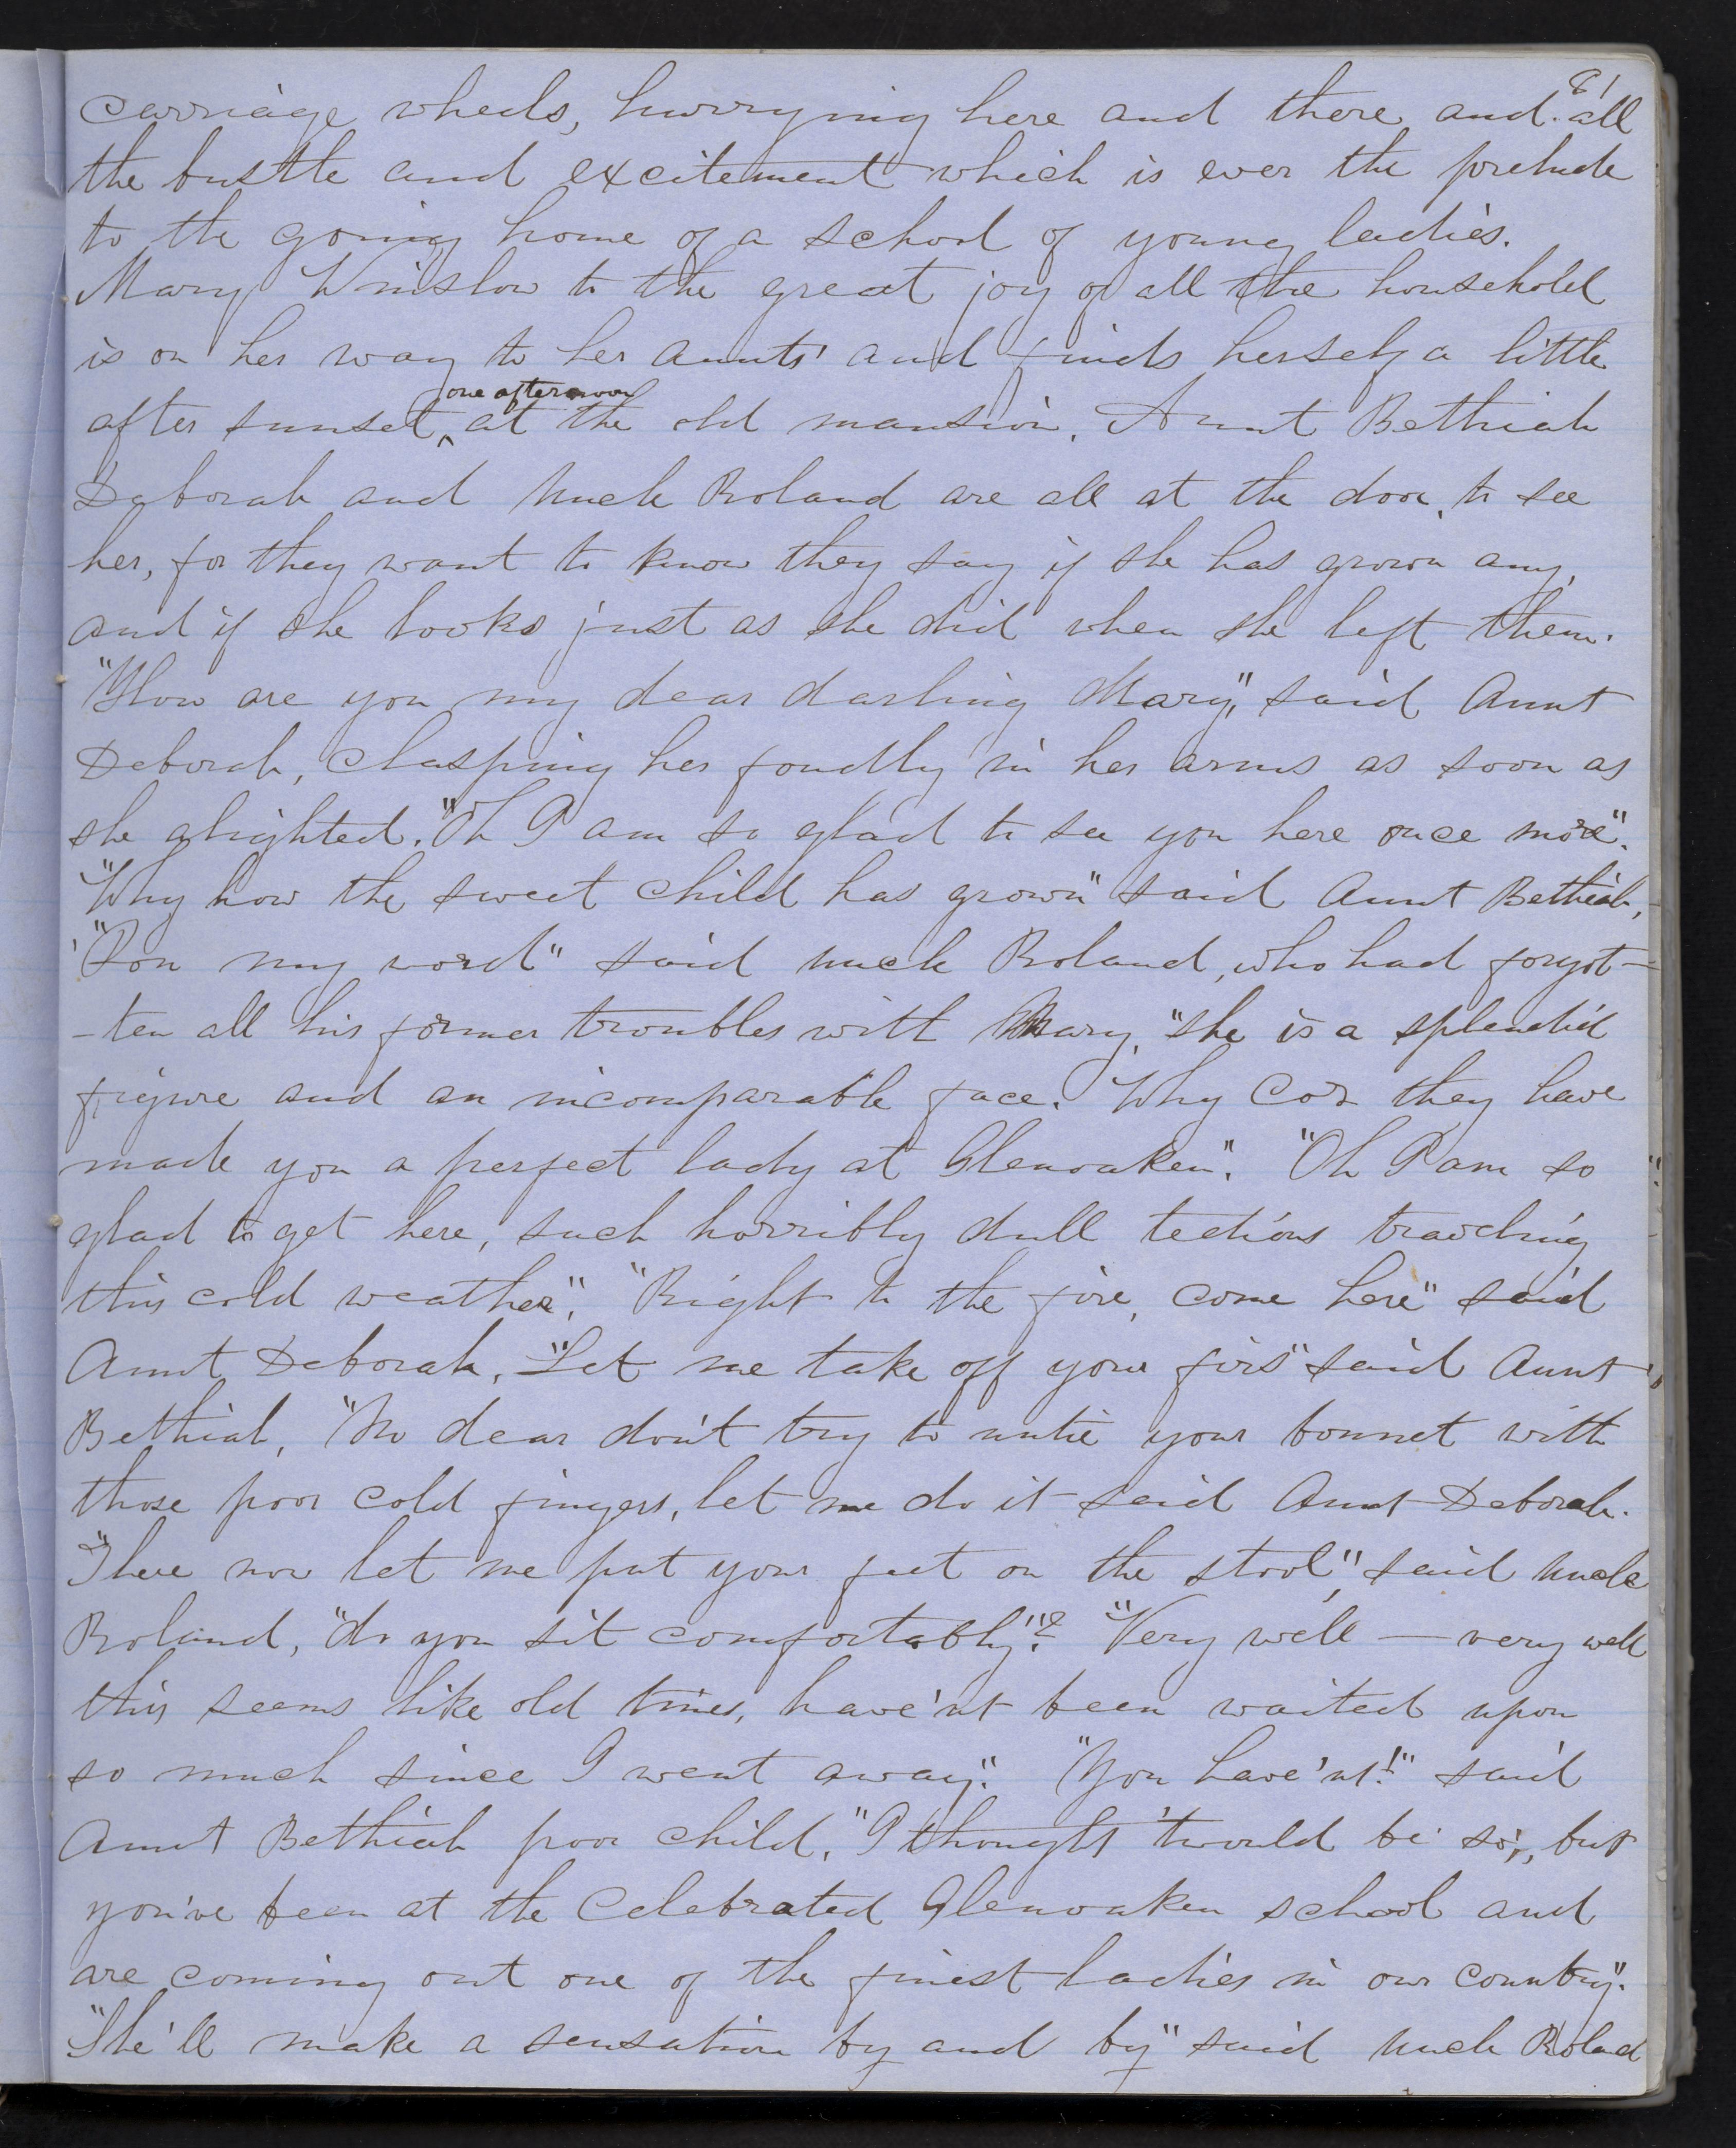 61
carriage wheels, hurrying here and there and all
the bustle and excitement which is ever the prelude
to the going home of a school of young ladies.
Mary Winslow to the great joy of all the household
is on her way to her aunts' and finds herself a little
one afternoon
after sunset, ^ at the old mansion. Aunt Bethiah
Deborah and Uncle Roland are all at the door, to see
her, for they want to know they say if she has grown any,
and if she looks just as she did when she left them.
"How are you my dear darling Mary," said Aunt
Deborah, clasping her fondly in her arms as soon as
she alighted. "Oh I am so glad to see you here once more".
"Why how the sweet child has grown" said Aunt Bethiah,
"'Pon my word" said uncle Roland, who had forgot-
-ten all his former troubles with Mary, "she is a splendid
figure and an incomparable face. Why Coz they have
made you a perfect lady at Glenoaken". "Oh I am so
glad to get here, such horribly dull tedious traveling
this cold weather". "Right to the fire, come here" said
Aunt Deborah, "Let me take off your furs" said Aunt
Bethiah, "No dear don't try to untie your bonnet with
those poor cold fingers, let me do it said Aunt Deborah.
"There now let me put your feet on the stool," said Uncle
Roland, "do you sit comfortably"? "Very well — very well
this seems like old times, have'nt been waited upon
so much since I went away". "You have'nt!" said
Aunt Bethiah poor child, "I thought 'twould be so, but
you've been at the Celebrated Glenoaken school and
are coming out one of the finest ladies in our country".
"She'll make a sensation by and by" said Uncle Roland